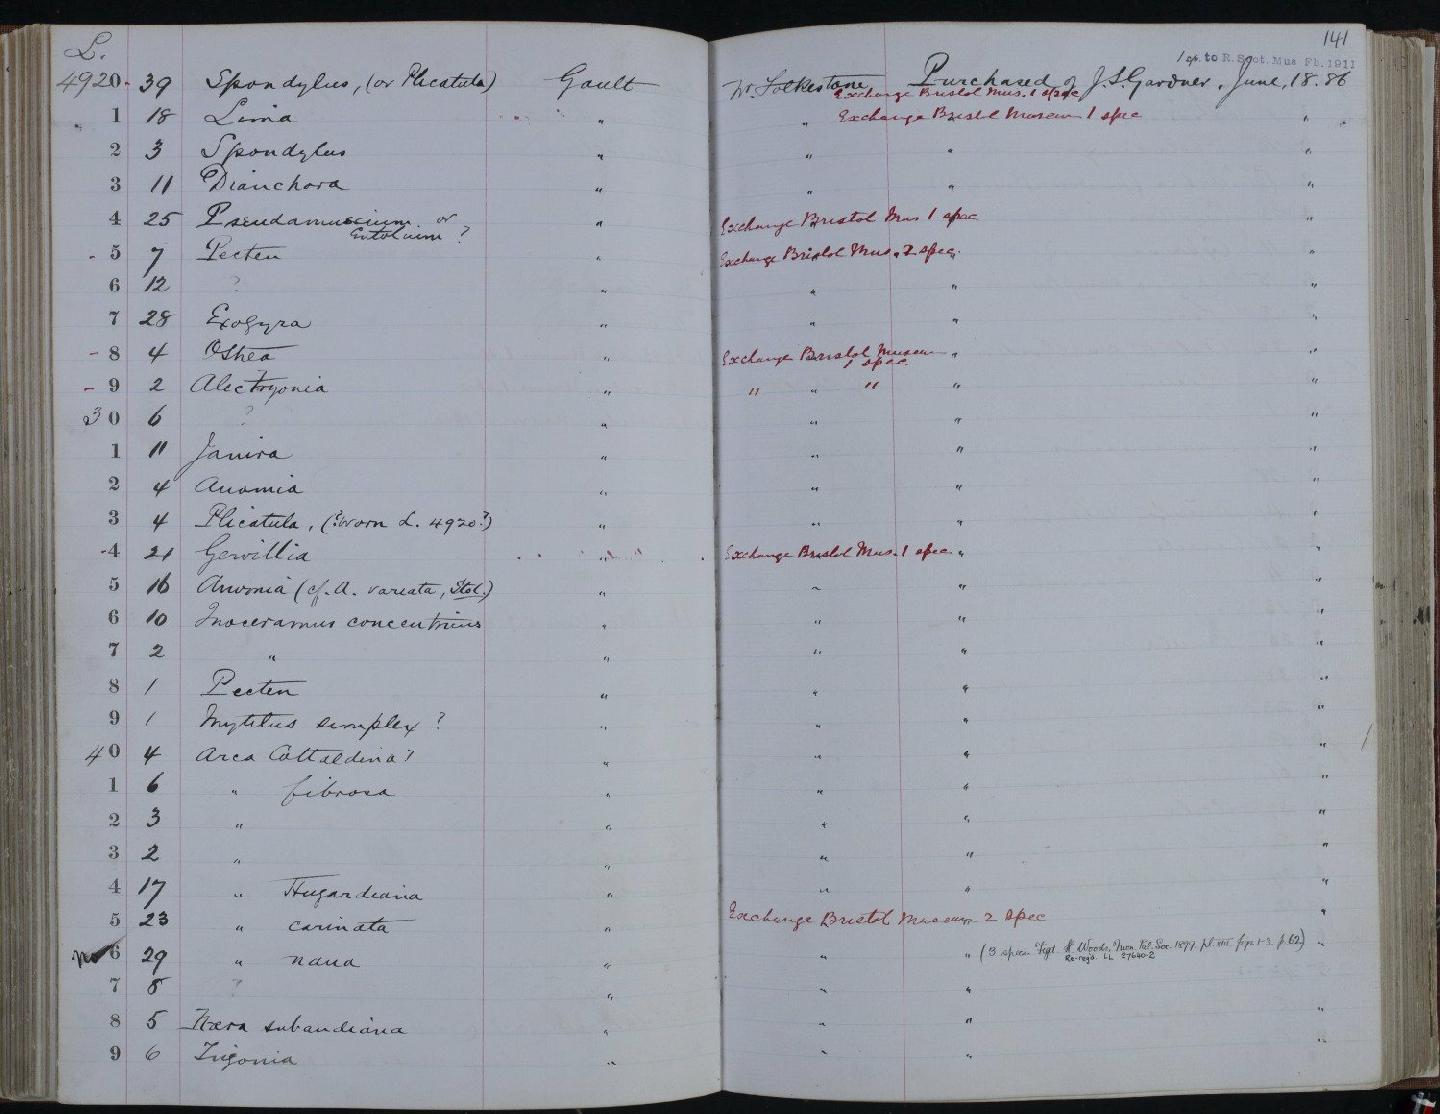 141
L.
1 sp. to R. Scot. Mus. Fb. 1911
4920 39 Spondylus, (or Plicatula) Gault Nr. Folkestone Purchased of J.S. Gardner, June, 18.86
Exchange Bristol Mus. 1 spec
1 18 Lima " " Exchange Bristol Museum 1 spec "
2 3 Spondylus " " " "
3 11 Dianchora " " " "
4 25 Pseudamussium or " Exchange Bristol Mus 1 spec "
Entolium ?
5 7 Pecten " Exchange Bristol Mus. 2 spec. "
6 12 ? " " " "
7 28 Exogyra " " " "
8 4 Ostrea " Exchange Bristol Museum " "
1 spec
9 2 Alectryonia " " " " " "
30 6 ? " " " "
1 11 Janira " " " "
2 4 Anomia " " " "
3 4 Plicatula, (?worn L. 4920?) " " " "
4 21 Gervillia " Exchange Bristol Mus. 1 spec. " "
5 16 Anomia (cf. A. variata, Stol.) " " " "
6 10 Inoceramus concentricus " " " "
7 2 " " " " "
8 1 Pecten " " " "
9 1 Mytilus simplex ? " " " "
40 4 Arca Cottaldina? " " " "
1 6 " fibrosa " " " "
2 3 " " " " "
3 2 " " " " "
4 17 " Hugardiana " " " "
5 23 " carinata " Exchange Bristol Museum 2 spec "
No 6 29 " nana " " " (3 specs. Figd. H. Woods, Mon. Pal. Soc. 1899. pl. figs 1-3. p. 62) "
Re-regd. LL 27640-2
7 8 ? " " "
8 5 Neæra subaudiana " " " "
9 6 Trigonia " " " "